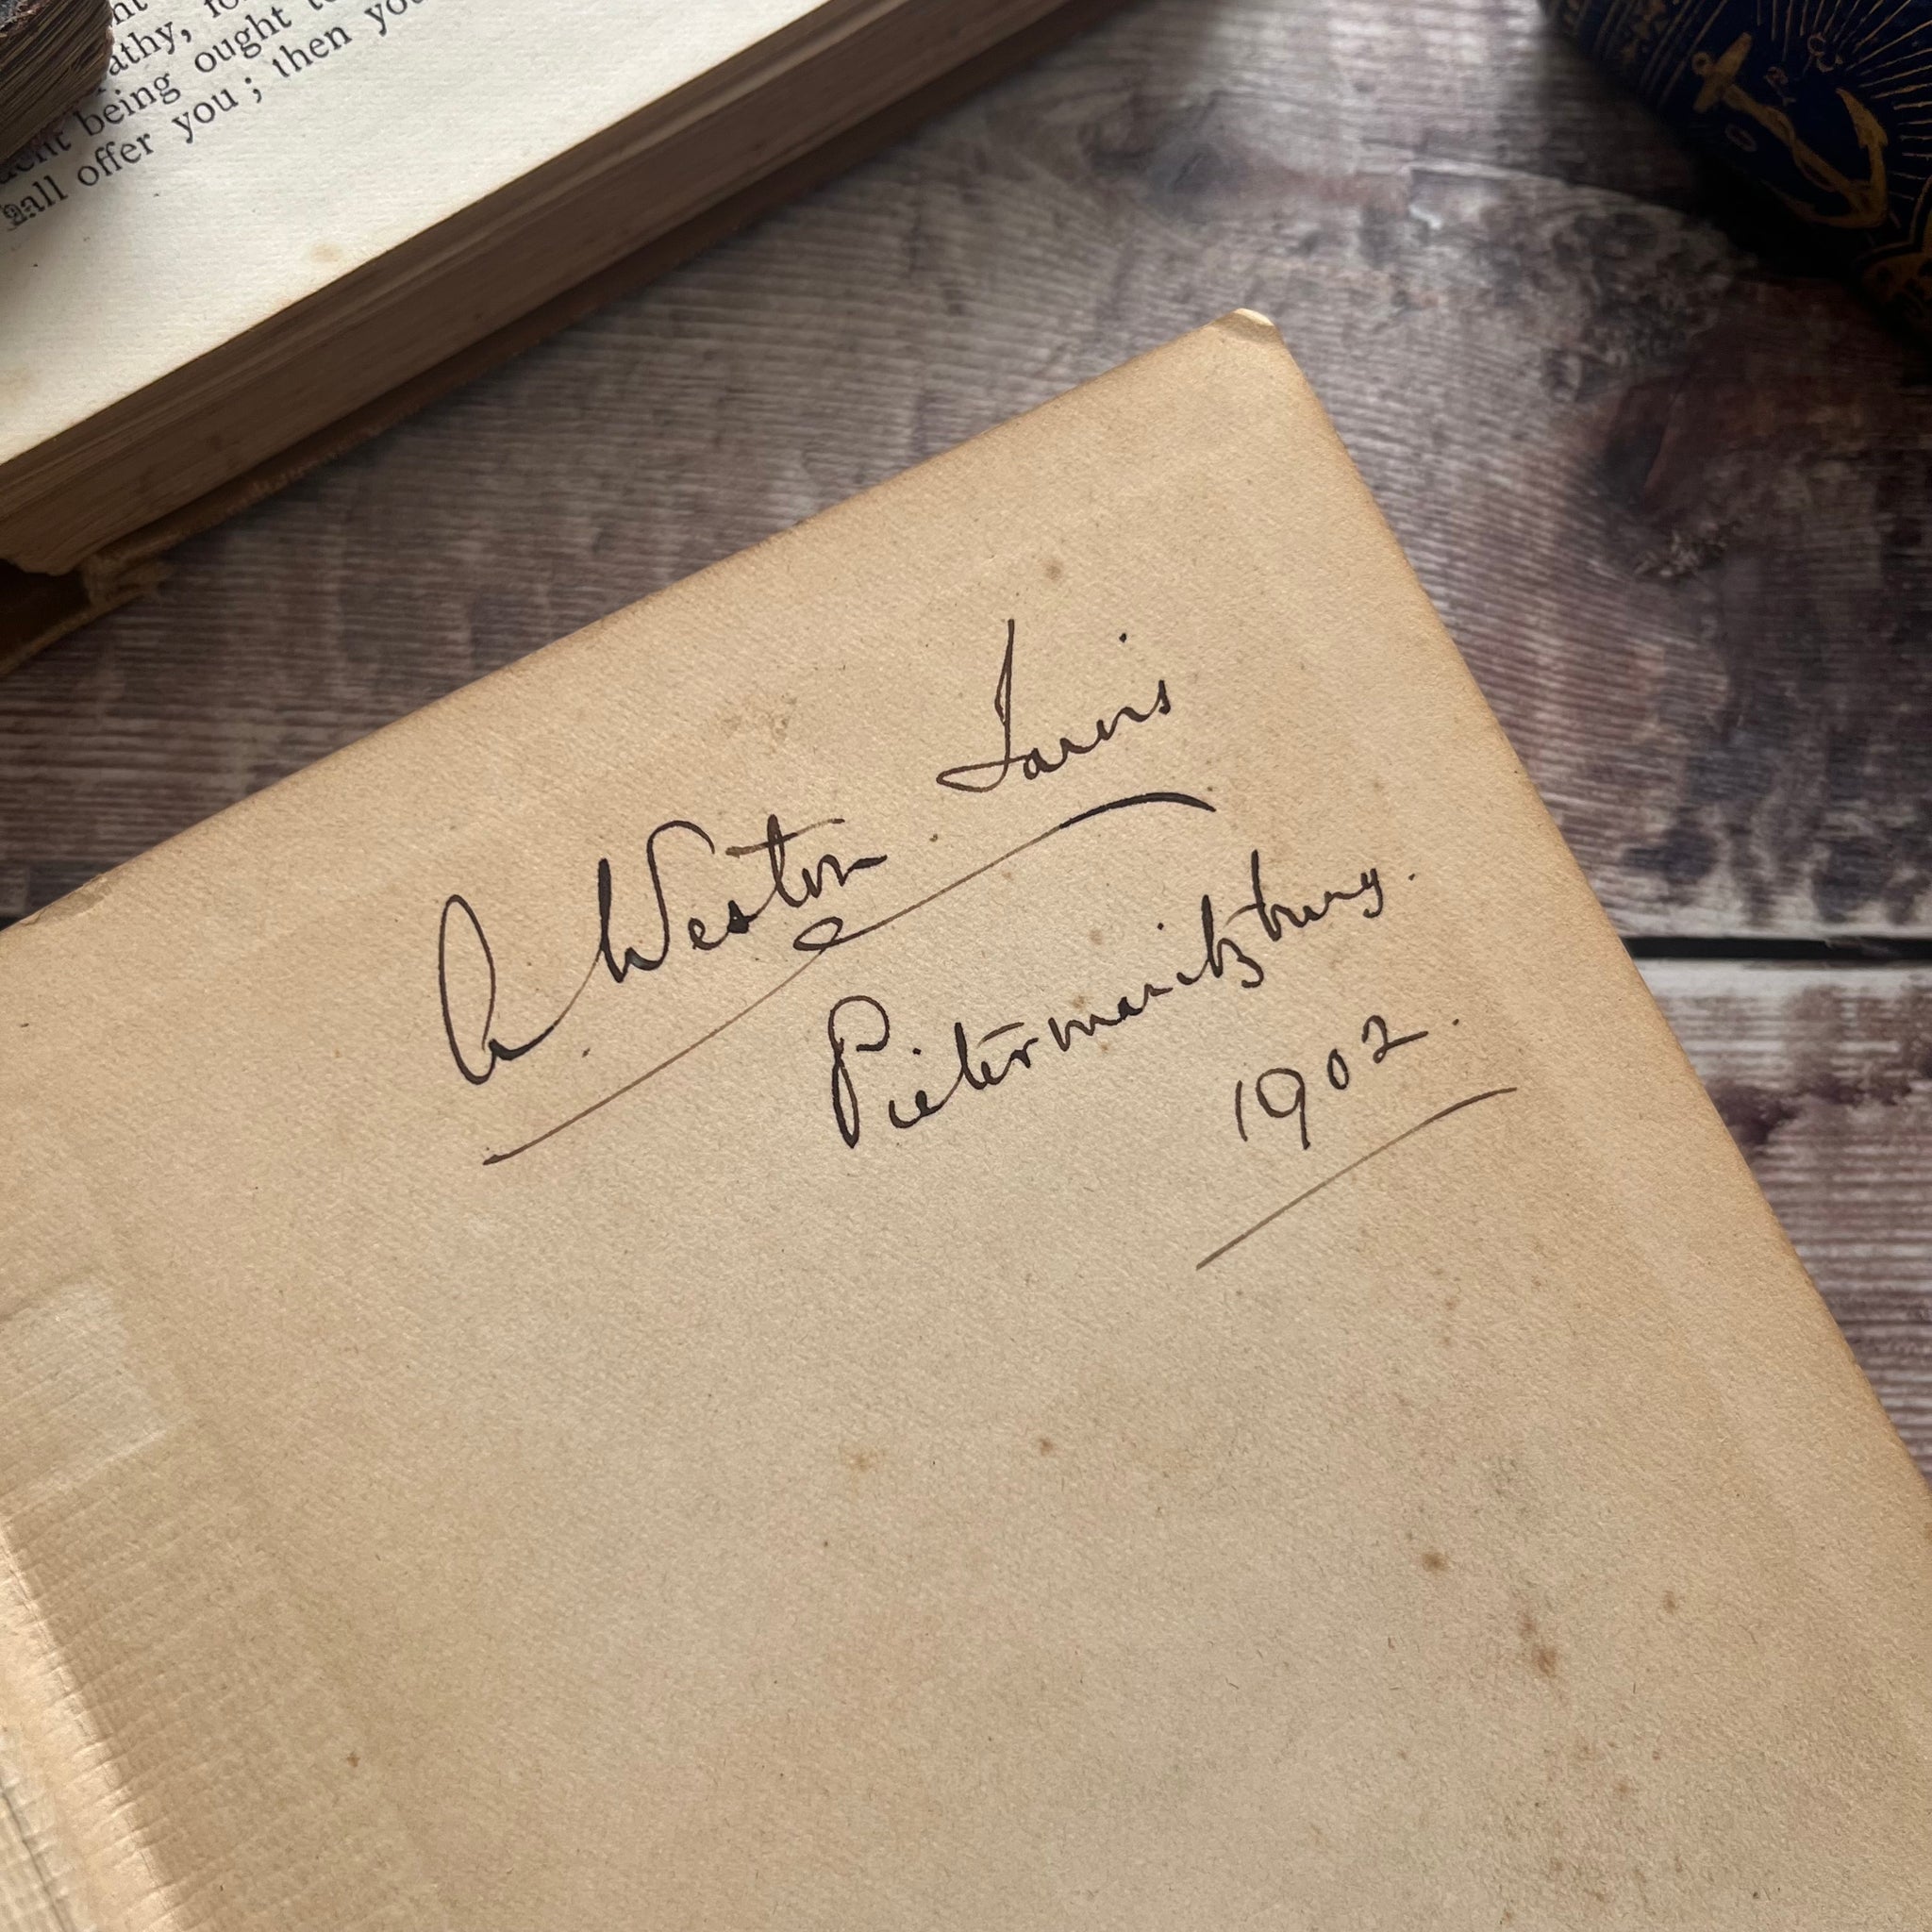 athy, fo
being ought t
all offer you; then you
A. Weston Jarvis
Pietermaritzburg.
1902.